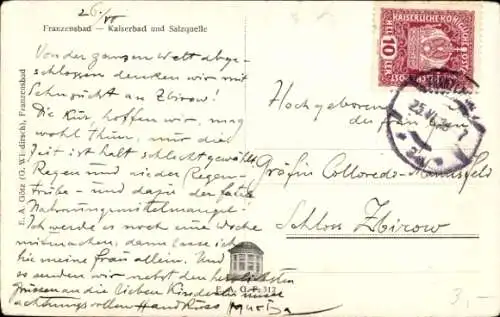 26/VI
Franzensbad — Kaiserbad und Salzquelle
Von der ganzen Welt abge-
schlossen denken wir mit
Sehnsucht an Zbirow!
Die Kur, hoffen wir, mag
wohl thun, nur die
Zeit ist halt schlecht gewählt
Regen und wieder Regen-
trübe - und dazu der fatale
Nahrungsmittelmangel!
Ich werde es noch eine Woche
mitmachen, dann lasse ich
hie meine frau allein. Und
so senden wir nebst den herzlichsten
Grüssen an die lieben Kinder
achtungsvollen Handkuss
E. A. Götz (G. Wiedirsch), Franzensbad
E. A. G. F. 312
KAISERLICHE KÖN
10
25.VI.
Hochgeboren
der frau
Gräfin Colloredo-Mannsfeld
Schloss Zbirow
3.-